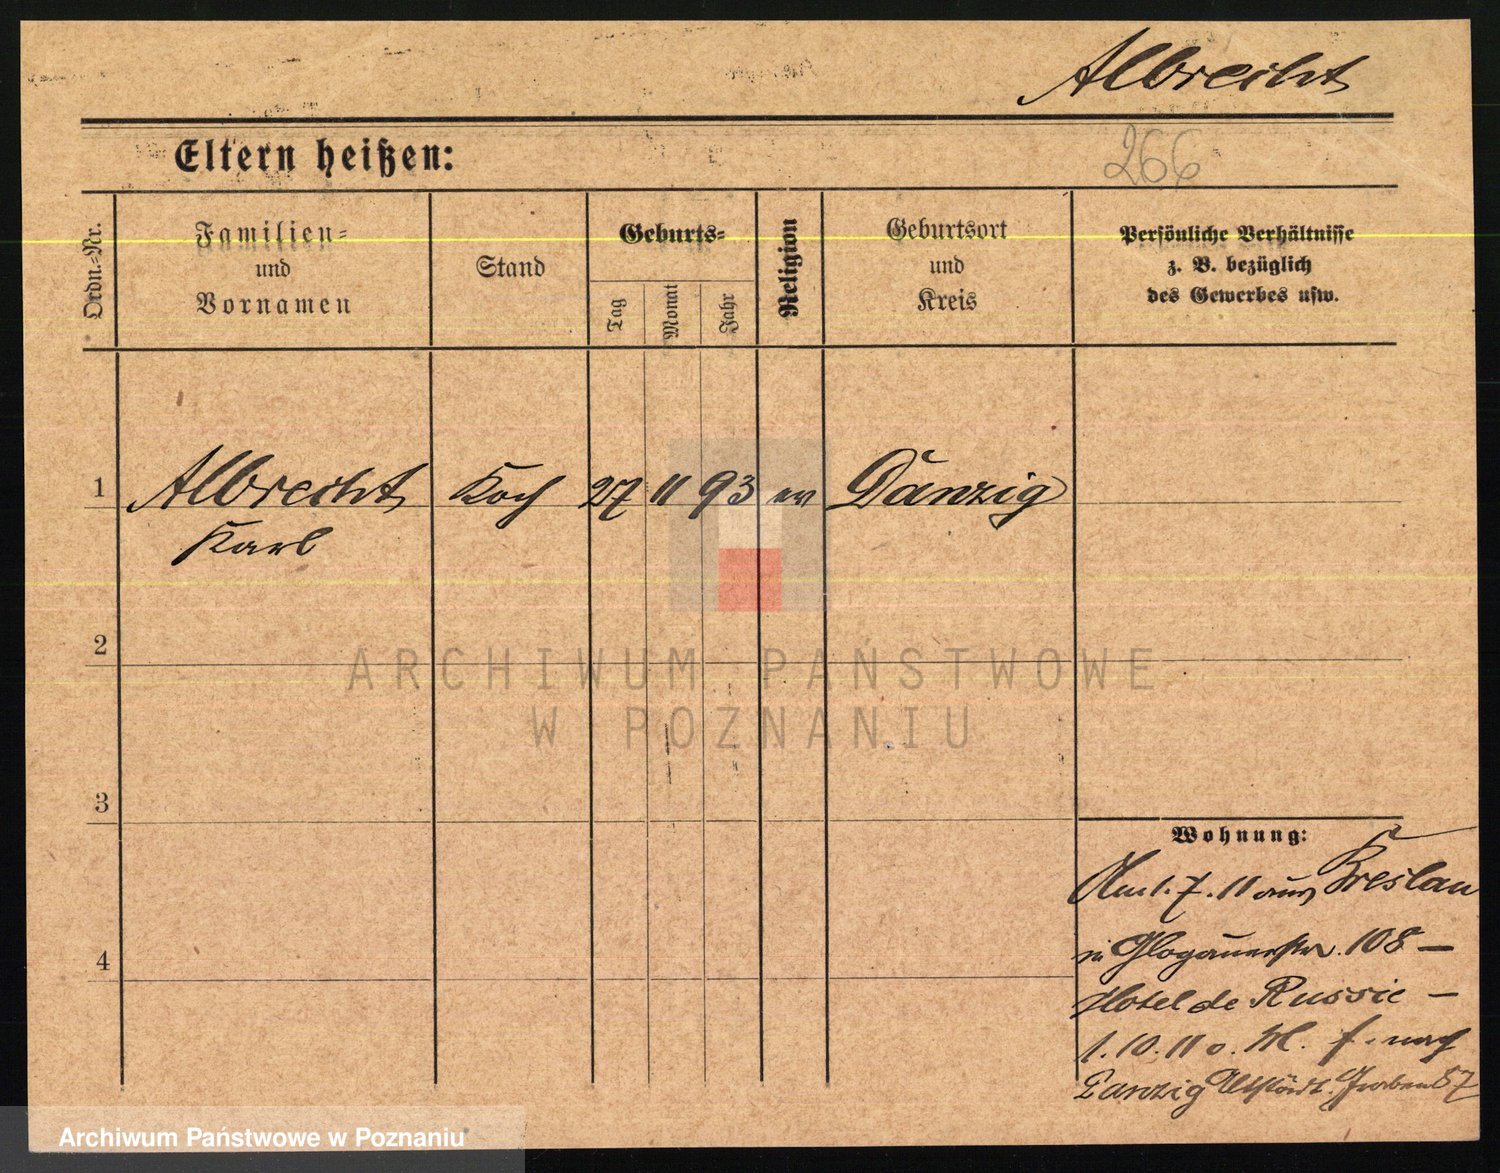 Albrecht
Eltern heißen:
266
Ordn.-Nr.
Familien-
und
Vornamen
Stand
Geburts-
Tag
Monat
Jahr
Religion
Geburtsort
und
Kreis
Persönliche Verhältnisse
z. B. bezüglich
des Gewerbes usw.
1 Albrecht Koch 27 11 93 ev Danzig
Karl
2
ARCHIWUM PAŃSTWOWE
W POZNANIU
3
Wohnung:
Am 1.7.11 aus Breslau
n Glogauerstr. 108 –
4
Hotel de Russie –
1.10.11 o. M. f. nach
Danzig Altstädt. Graben 57
Archiwum Państwowe w Poznaniu